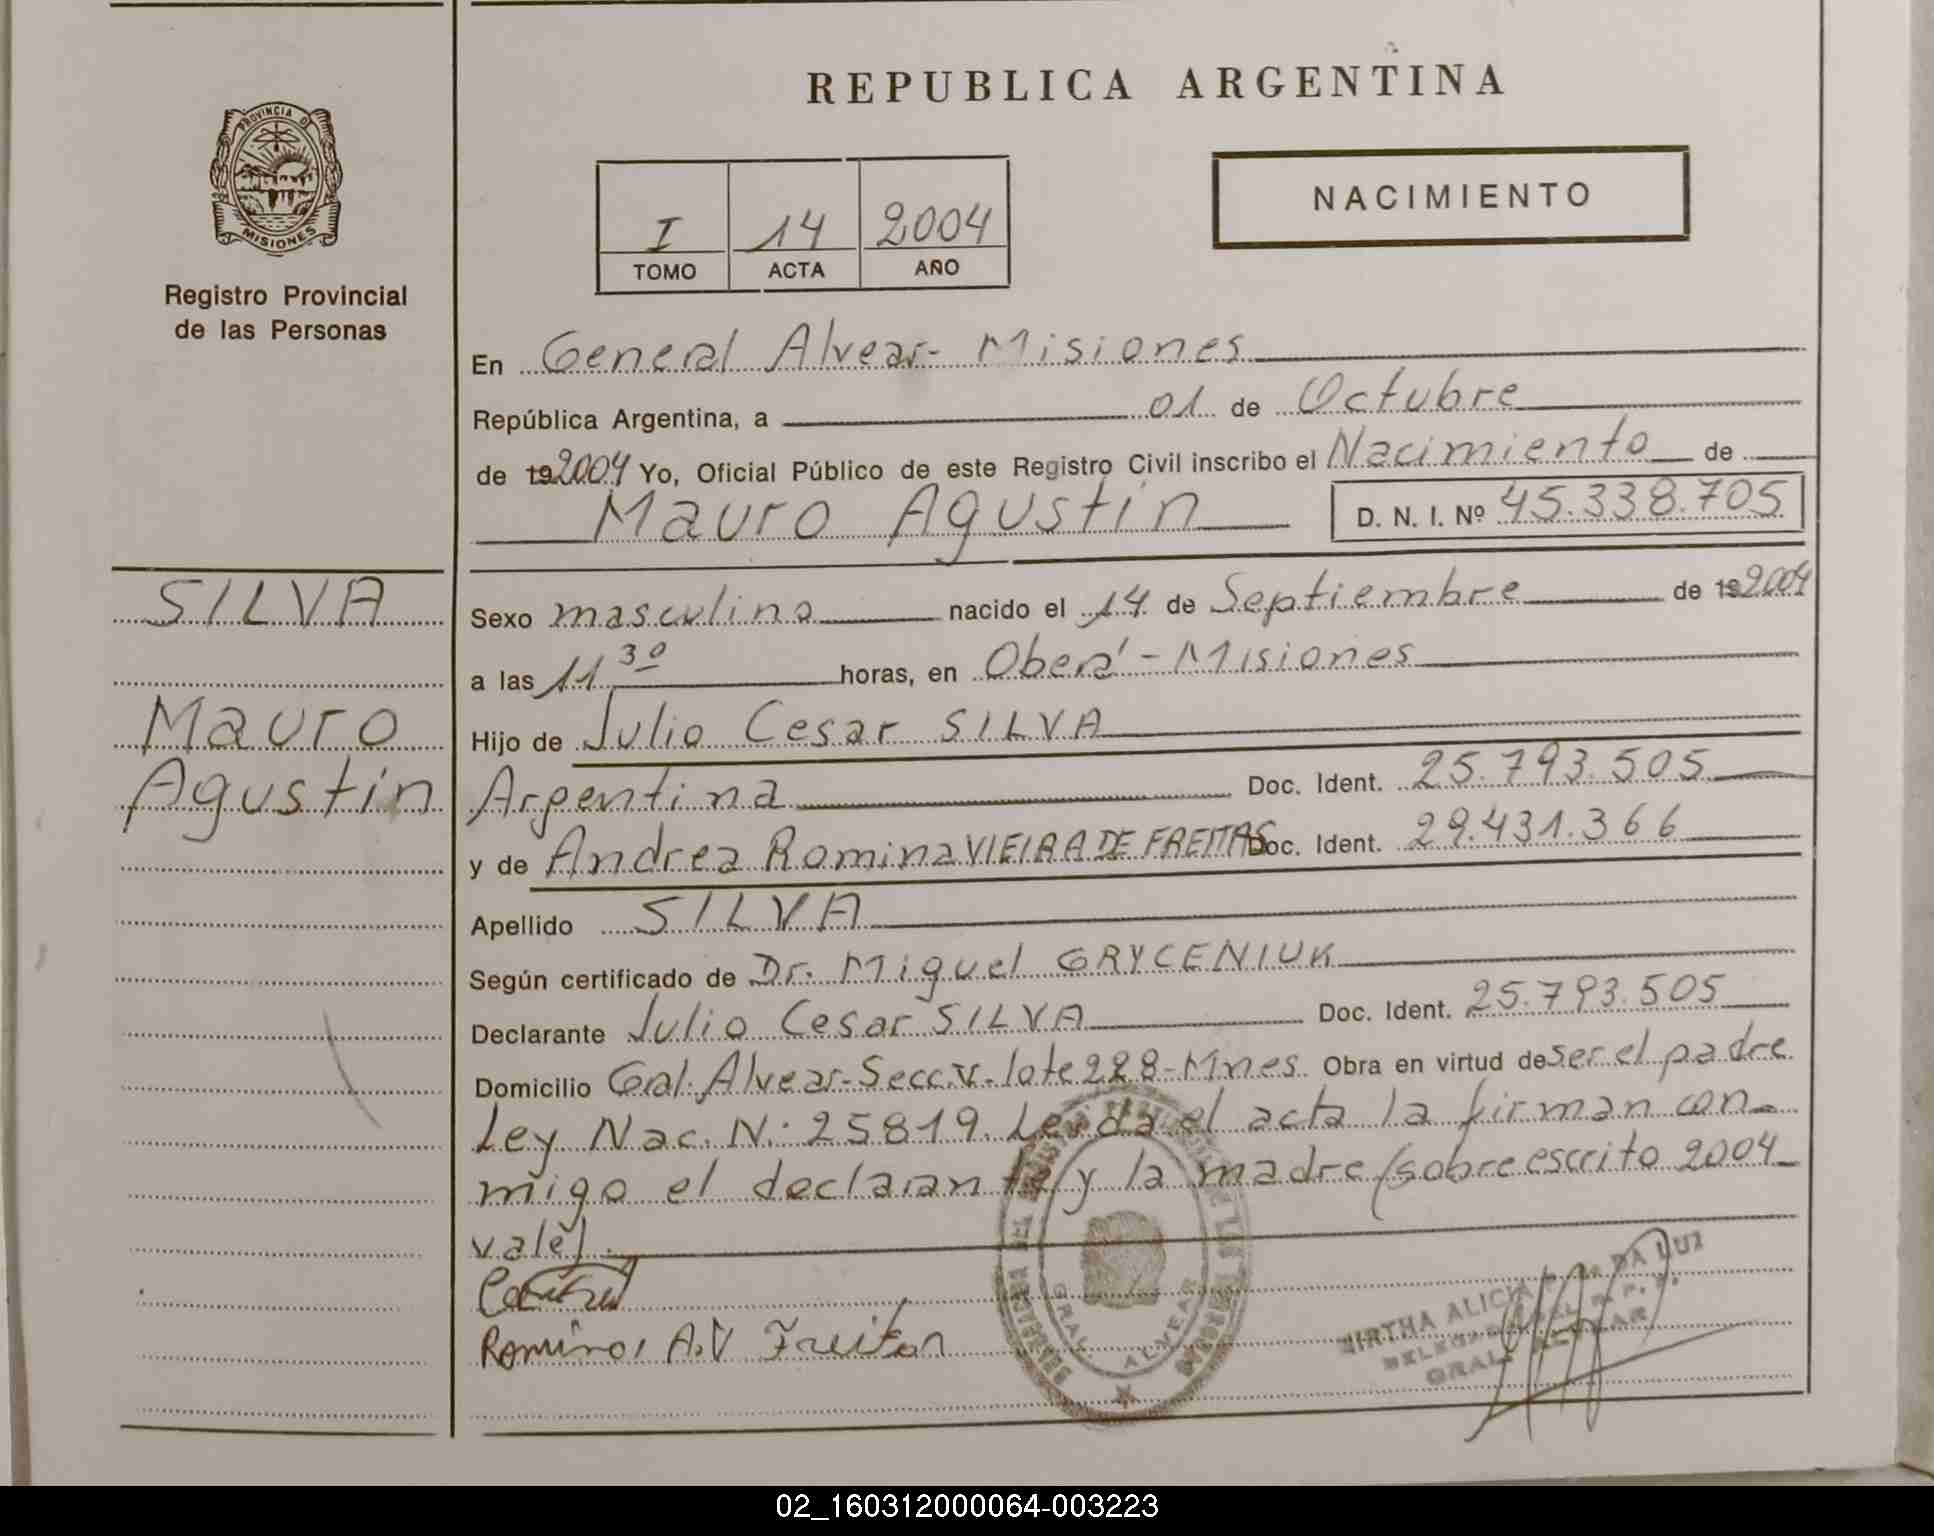 REPUBLICA ARGENTINA
PROVINCIA D
MISIONES
Registro Provincial
de las Personas
I 14 2004
TOMO ACTA AÑO
NACIMIENTO
En General Alvear- Misiones
República Argentina, a 01 de Octubre
de 192004 Yo, Oficial Público de este Registro Civil inscribo el Nacimiento de
Mauro Agustin D. N. I. Nº 45.338.705
SILVA
Mauro
Agustin
Sexo masculino nacido el 14 de Septiembre de 192004
a las 11 30 horas, en Oberá - Misiones
Hijo de Julio Cesar SILVA
Argentina Doc. Ident. 25.793.505
y de Andrea Romina VIEIRA DE FREITAS Doc. Ident. 29.431.366
Apellido SILVA
Según certificado de Dr. Miguel GRYCENIUK
Declarante Julio Cesar SILVA Doc. Ident. 25.793.505
Domicilio Gral. Alvear-Secc.V-lote 228-Mnes Obra en virtud de Ser el padre
Ley Nac. N: 25819. Leida el acta la firman con-
migo el declarante y la madre (sobreescrito 2004
vale)
Romina A.V Freitas
GRAL. ALVEAR
MIRTHA ALICIA DA LUZ
GRAL. ALVEAR
02_160312000064-003223